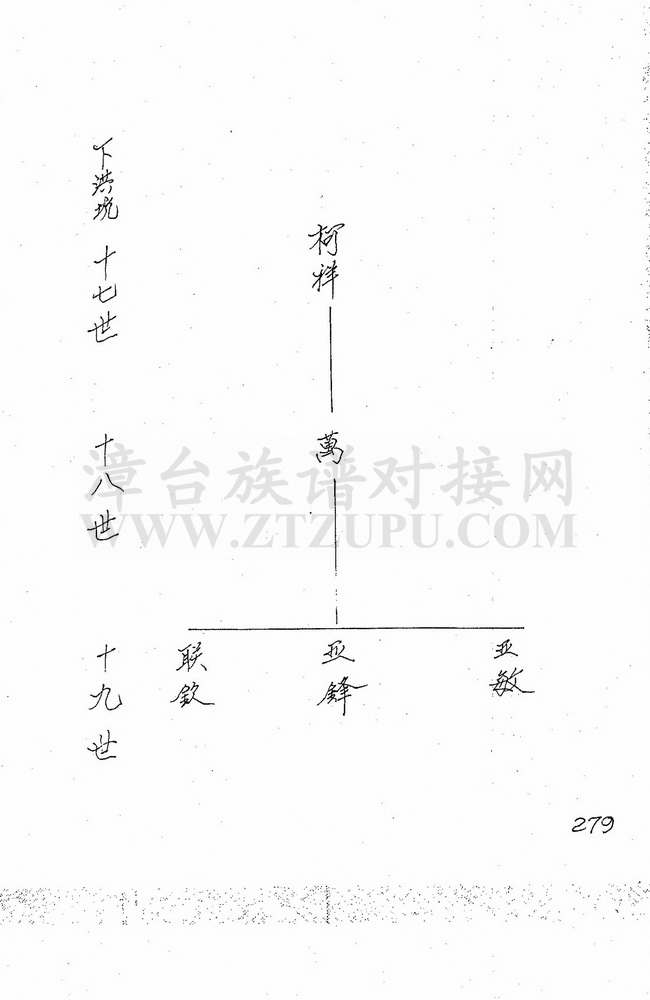 下洪坑 十七世
柯祥
十八世
萬
十九世
联钦
亚锋
亚敏
漳台族谱对接网
WWW.ZTZUPU.COM
279